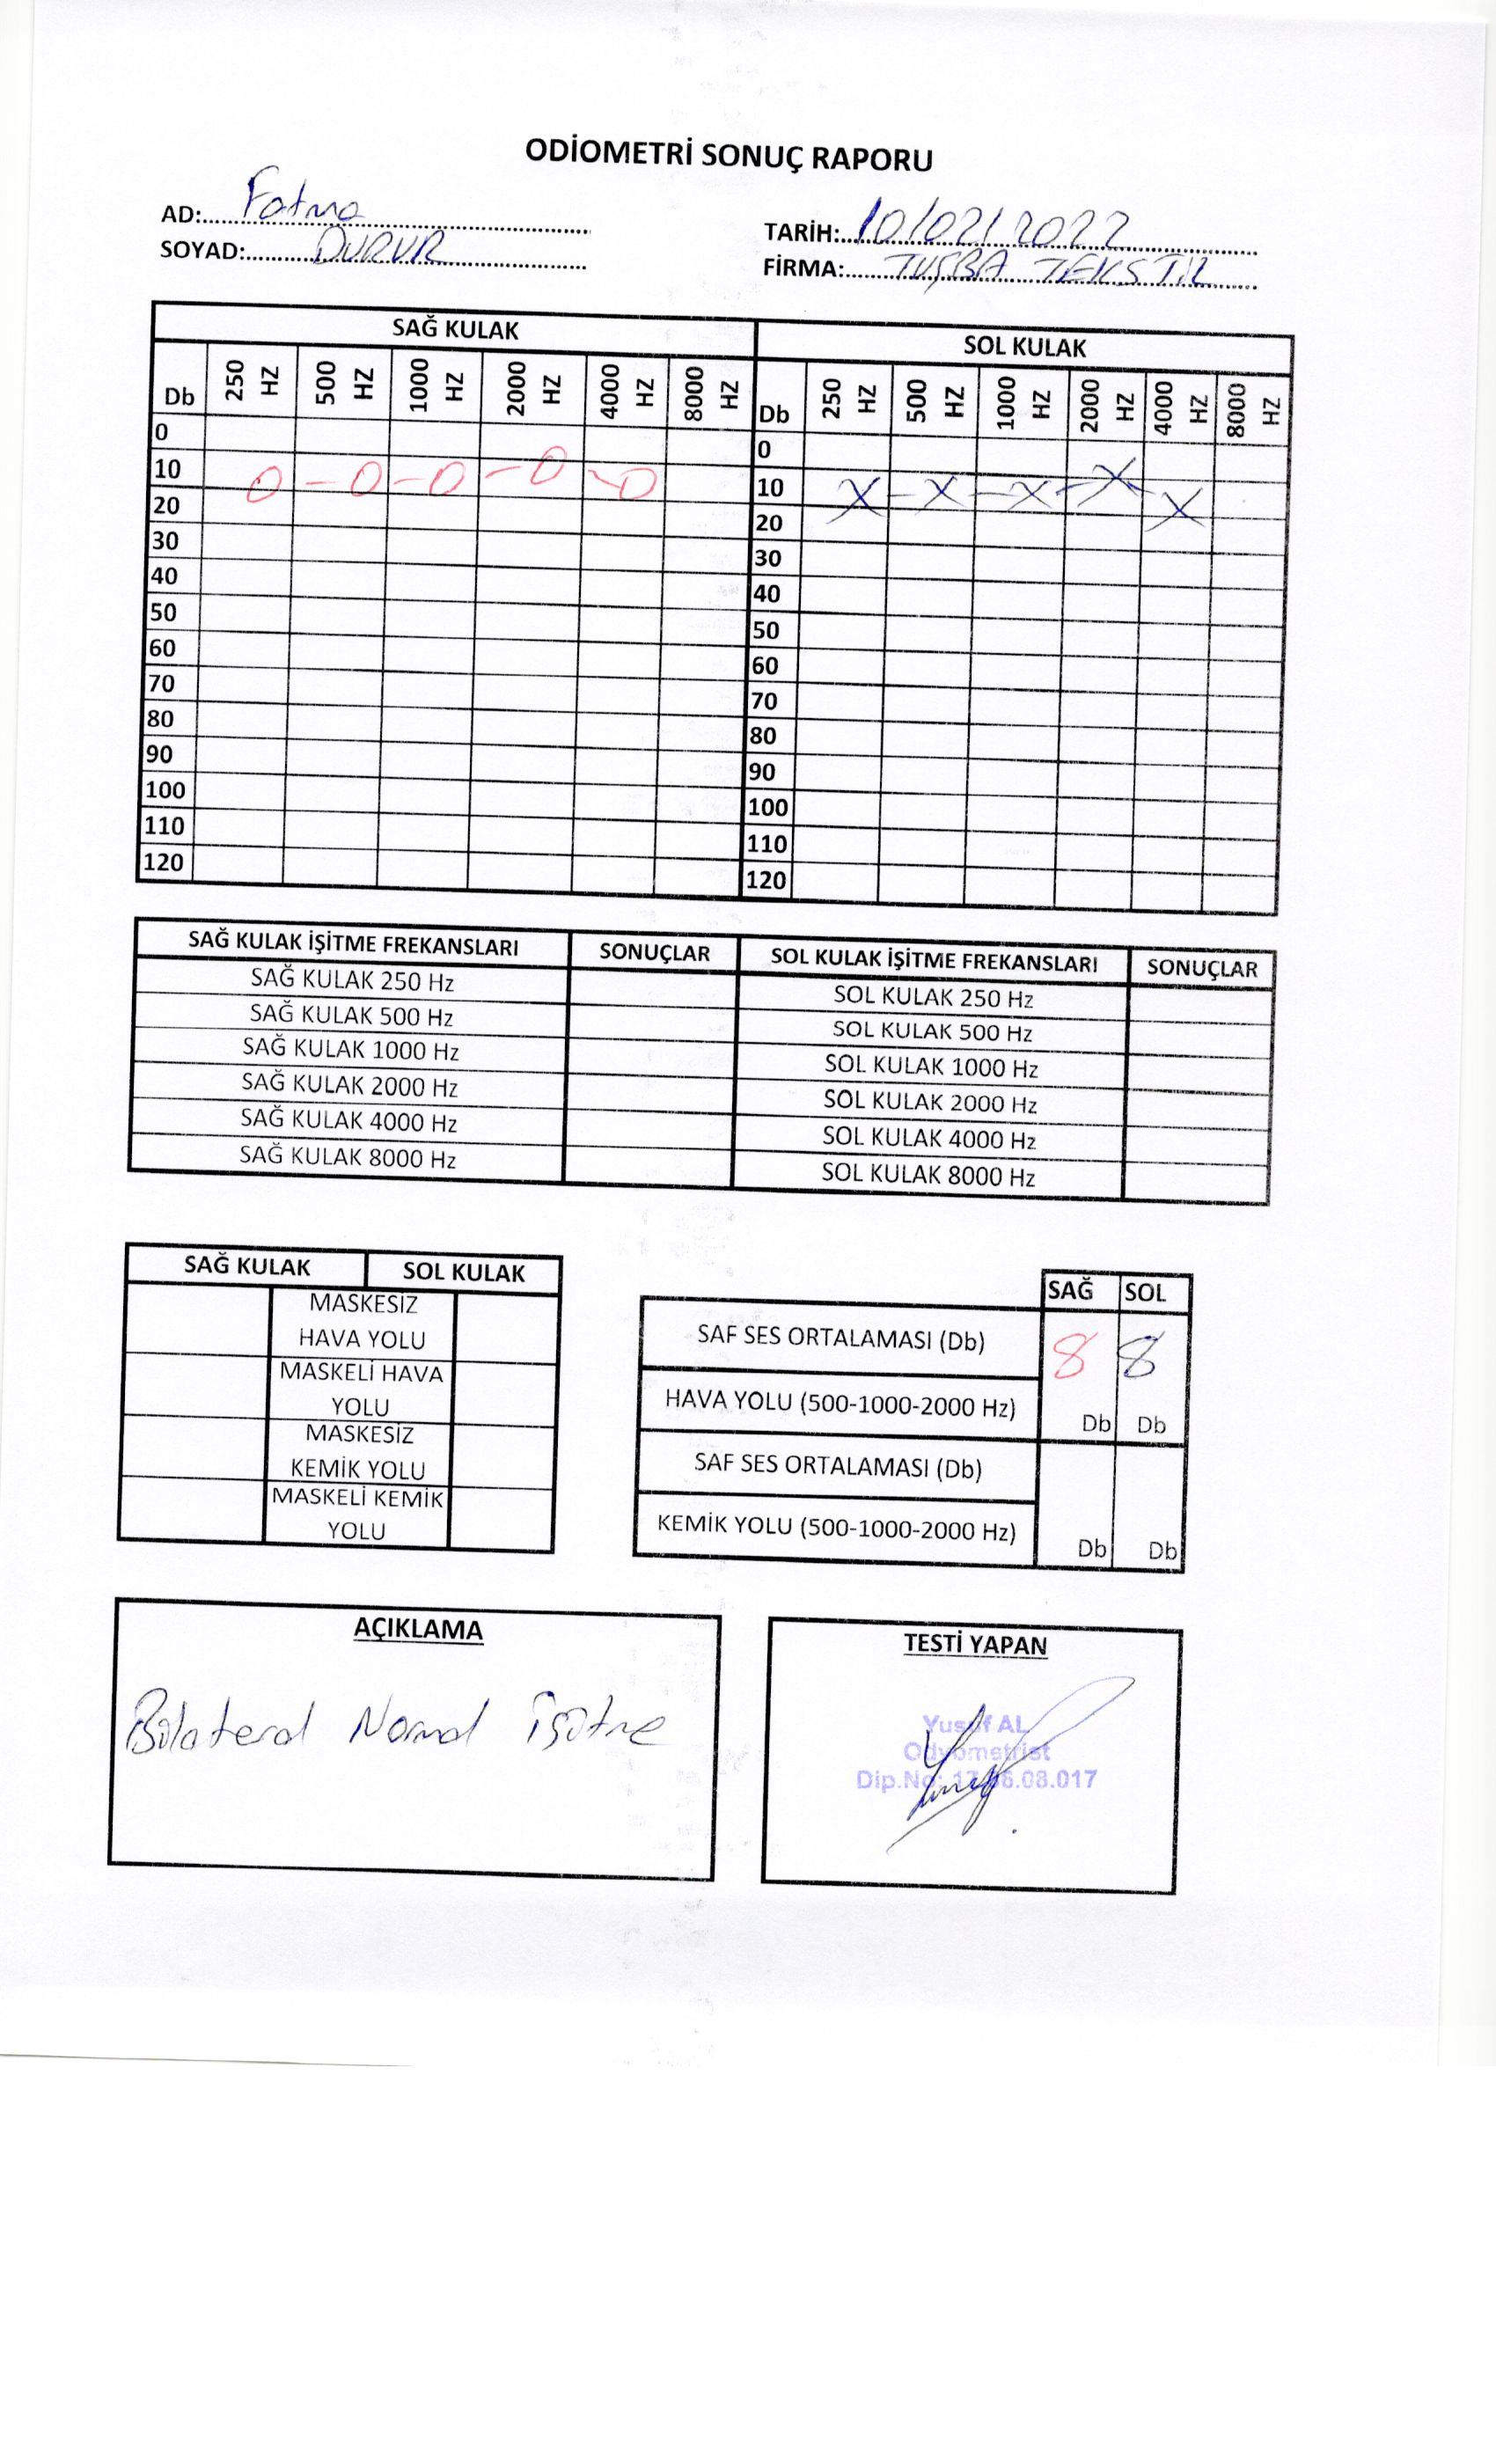 ODİOMETRİ SONUÇ RAPORU
AD: Fatma
SOYAD: DURUR
TARİH: 10/02/2022
FİRMA: TUŞBA TEKSTİL
SAĞ KULAK SOL KULAK
Db 250 HZ 500 HZ 1000 HZ 2000 HZ 4000 HZ 8000 HZ Db 250 HZ 500 HZ 1000 HZ 2000 HZ 4000 HZ 8000 HZ
0 0
10 0-0-0-0-0 10 X-X-X-X-X
20 20
30 30
40 40
50 50
60 60
70 70
80 80
90 90
100 100
110 110
120 120
SAĞ KULAK İŞİTME FREKANSLARI SONUÇLAR SOL KULAK İŞİTME FREKANSLARI SONUÇLAR
SAĞ KULAK 250 Hz SOL KULAK 250 Hz
SAĞ KULAK 500 Hz SOL KULAK 500 Hz
SAĞ KULAK 1000 Hz SOL KULAK 1000 Hz
SAĞ KULAK 2000 Hz SOL KULAK 2000 Hz
SAĞ KULAK 4000 Hz SOL KULAK 4000 Hz
SAĞ KULAK 8000 Hz SOL KULAK 8000 Hz
SAĞ KULAK SOL KULAK
MASKESİZ
HAVA YOLU
MASKELİ HAVA
YOLU
MASKESİZ
KEMİK YOLU
MASKELİ KEMİK
YOLU
SAĞ SOL
SAF SES ORTALAMASI (Db) 8 8
HAVA YOLU (500-1000-2000 Hz) Db Db
SAF SES ORTALAMASI (Db)
KEMİK YOLU (500-1000-2000 Hz) Db Db
AÇIKLAMA
Bilateral Normal işitme
TESTİ YAPAN
Yusuf AL
Odyometrist
Dip.No: 17.06.08.017